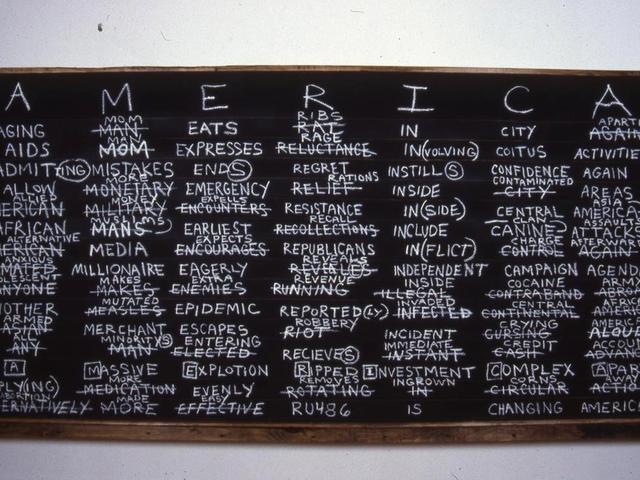 A M E R I C A
MOM RIBS APART
AGING MAN EATS RAT IN CITY AGAIN
RAGE
AIDS MOM EXPRESSES RELUCTANCE IN(VOLVING) COITUS ACTIVITIE
ADMIT(ING) MISTAKES END(S) REGRET INSTILL(S) CONFIDENCE AGAIN
MORE RATIONS CONTAMINATED
ALLOW MONETARY EMERGENCY RELIEF INSIDE CITY AREAS
ALLIED MONEY EXPELLS ASIA
ERICAN MILITARY ENCOUNTERS RESISTANCE IN(SIDE) CENTRAL AMERIC
RECALL CLAN ASSAUL
AFRICAN MANS EARLIEST RECOLLECTIONS INCLUDE CANINE ATTACKS
ALTERNATIVE EXPECTS CHARGE AFTERWAR
MEDIA ENCOURAGES REPUBLICANS IN(FLICT) CONTROL AGAIN
ANXIOUS REVEALS
MILLIONAIRE EAGERLY REVEALES INDEPENDENT CAMPAIGN AGEND
MAKES EXTRA REVENUE INSIDE COCAINE
NYONE ENEMIES RUNNING ILLEGAL CONTRABAND
MUTATED INVADED CENTRAL
OTHER MEASLES EPIDEMIC REPORTED(LY) INFECTED CONTINENTAL
ROBBERY CRYING
MERCHANT ESCAPES RIOT INCIDENT CURSING
ALL MINORITY(S) ENTERING IMMEDIATE CREDIT
ANY MAN ELECTED RECIEVE(S) INSTANT CASH
A MASSIVE EXPLOTION RIPPED INVESTMENT COMPLEX APAR
MORE REMOVES INGROWN CORNS
PLY(ING) MEDICATION EVENLY ROTATING IN CIRCULAR
ABORTION MADE EASY
ERNATIVELY MORE EFFECTIVE RU486 IS CHANGING AMERIC